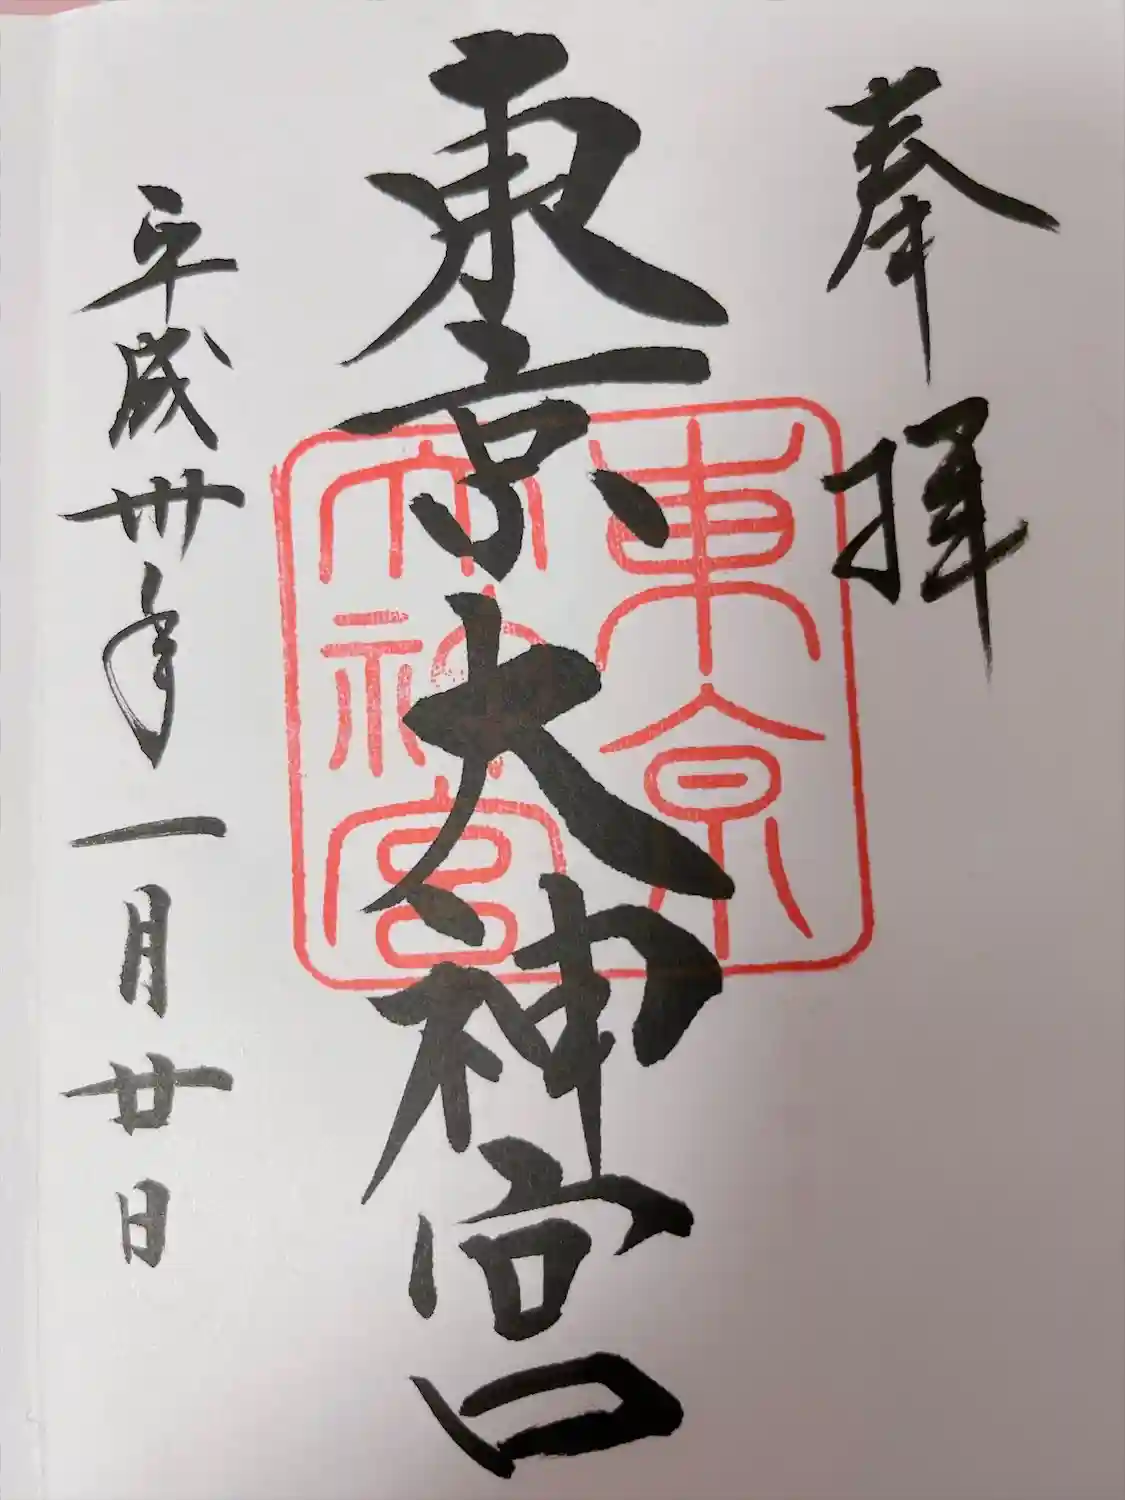 奉拝
東京大神宮
東京
大神宮
平成卅年一月廿日